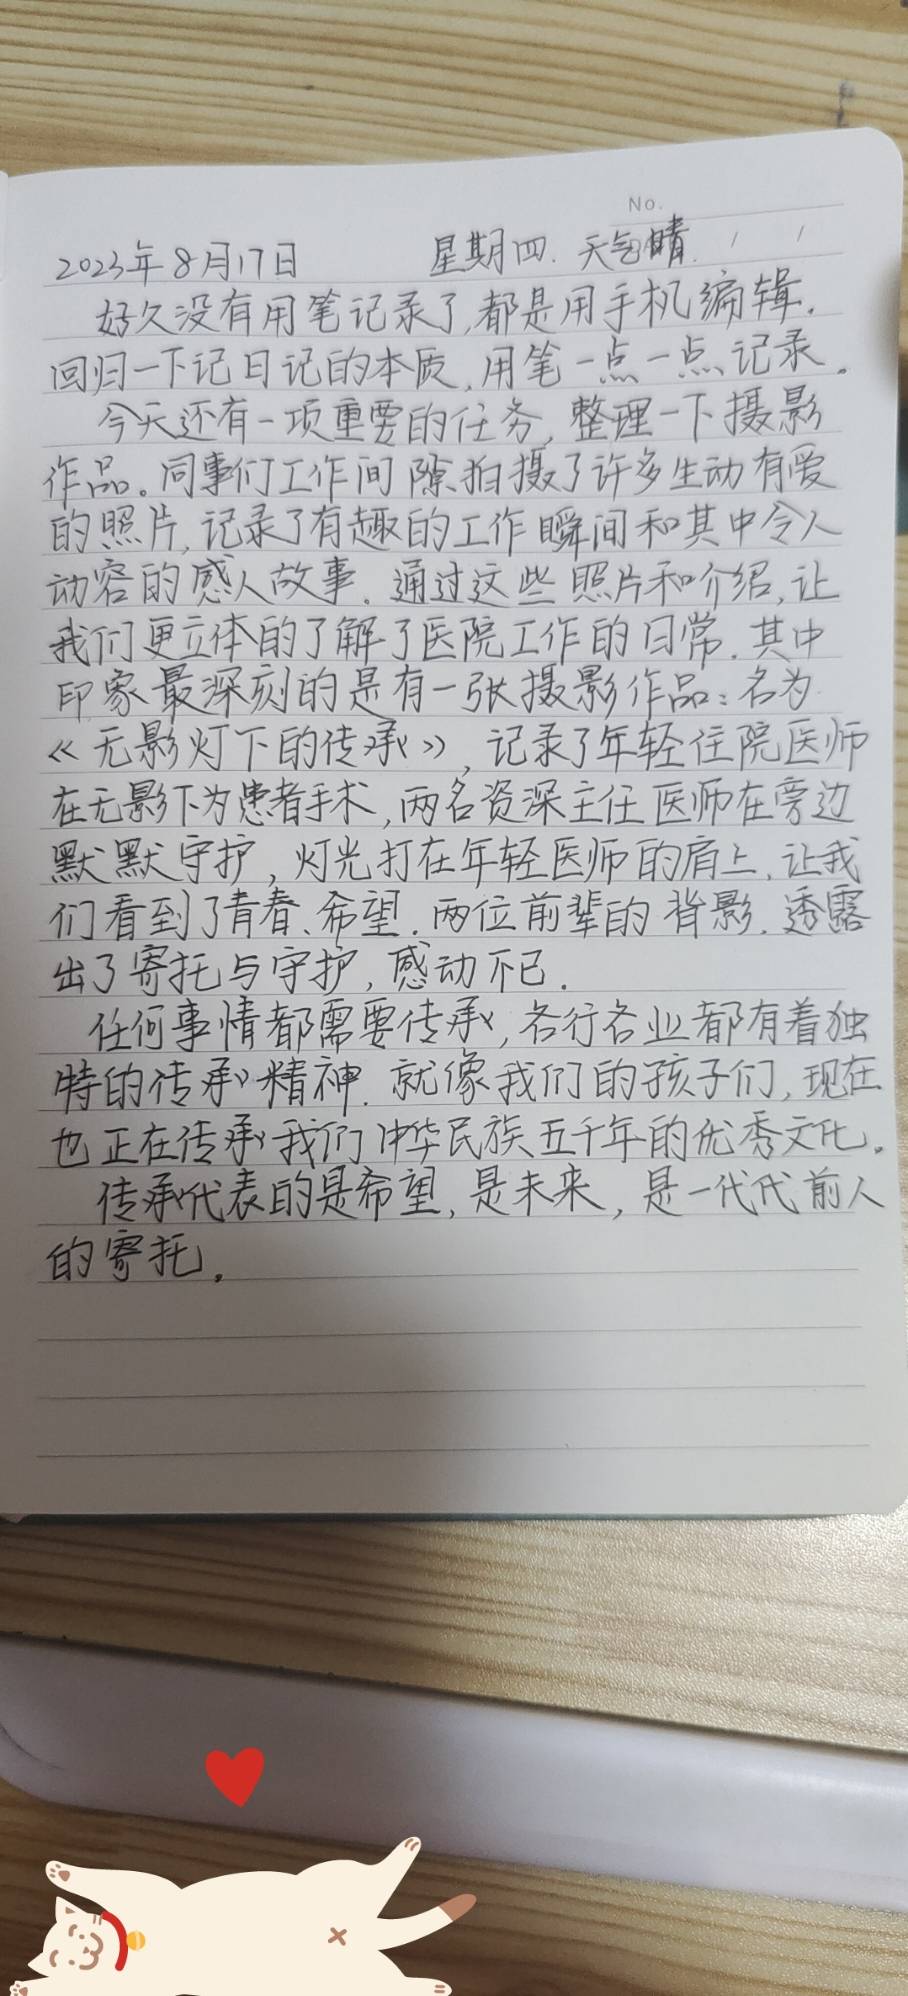 No.
2023年8月17日 星期四. 天气晴.
好久没有用笔记录了,都是用手机编辑.
回归一下记日记的本质,用笔一点一点记录.
今天还有一项重要的任务,整理一下摄影
作品。同事们工作间隙拍摄了许多生动有爱
的照片,记录了有趣的工作瞬间和其中令人
动容的感人故事.通过这些照片和介绍,让
我们更立体的了解了医院工作的日常.其中
印象最深刻的是有一张摄影作品:名为
《无影灯下的传承》,记录了年轻住院医师
在无影下为患者手术,两名资深主任医师在旁边
默默守护,灯光打在年轻医师的肩上,让我
们看到了青春、希望.两位前辈的背影.透露
出了寄托与守护,感动不已.
任何事情都需要传承,各行各业都有着独
特的传承精神.就像我们的孩子们,现在
也正在传承我们中华民族五千年的优秀文化.
传承代表的是希望,是未来,是一代代前人
的寄托.